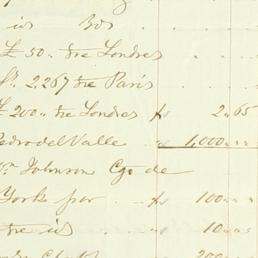 id 30s
£ 50. tre Londres
2,267 tre Paris
£ 200. tre Londres 2.65
Pedro del Valle 1,000
Wm Johnson Cgo de
York por 100
tre id 10
200